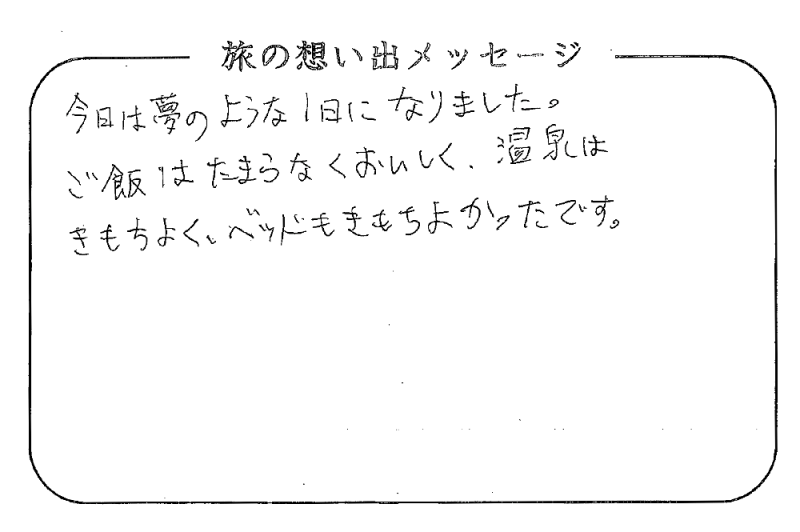 旅の想い出メッセージ
今日は夢のような1日になりました。
ご飯はたまらなくおいしく、温泉は
きもちよく、ベッドもきもちよかったです。